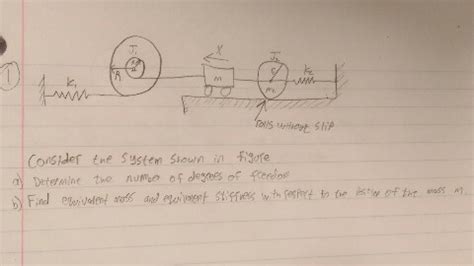 1
J₁
R
K₁
X
m
J₂
r
m₂
K₂
rolls without slip
Consider the system shown in figure
a) Determine the number of degrees of freedom
b) Find equivalent mass and equivalent stiffness with respect to the of the mass m